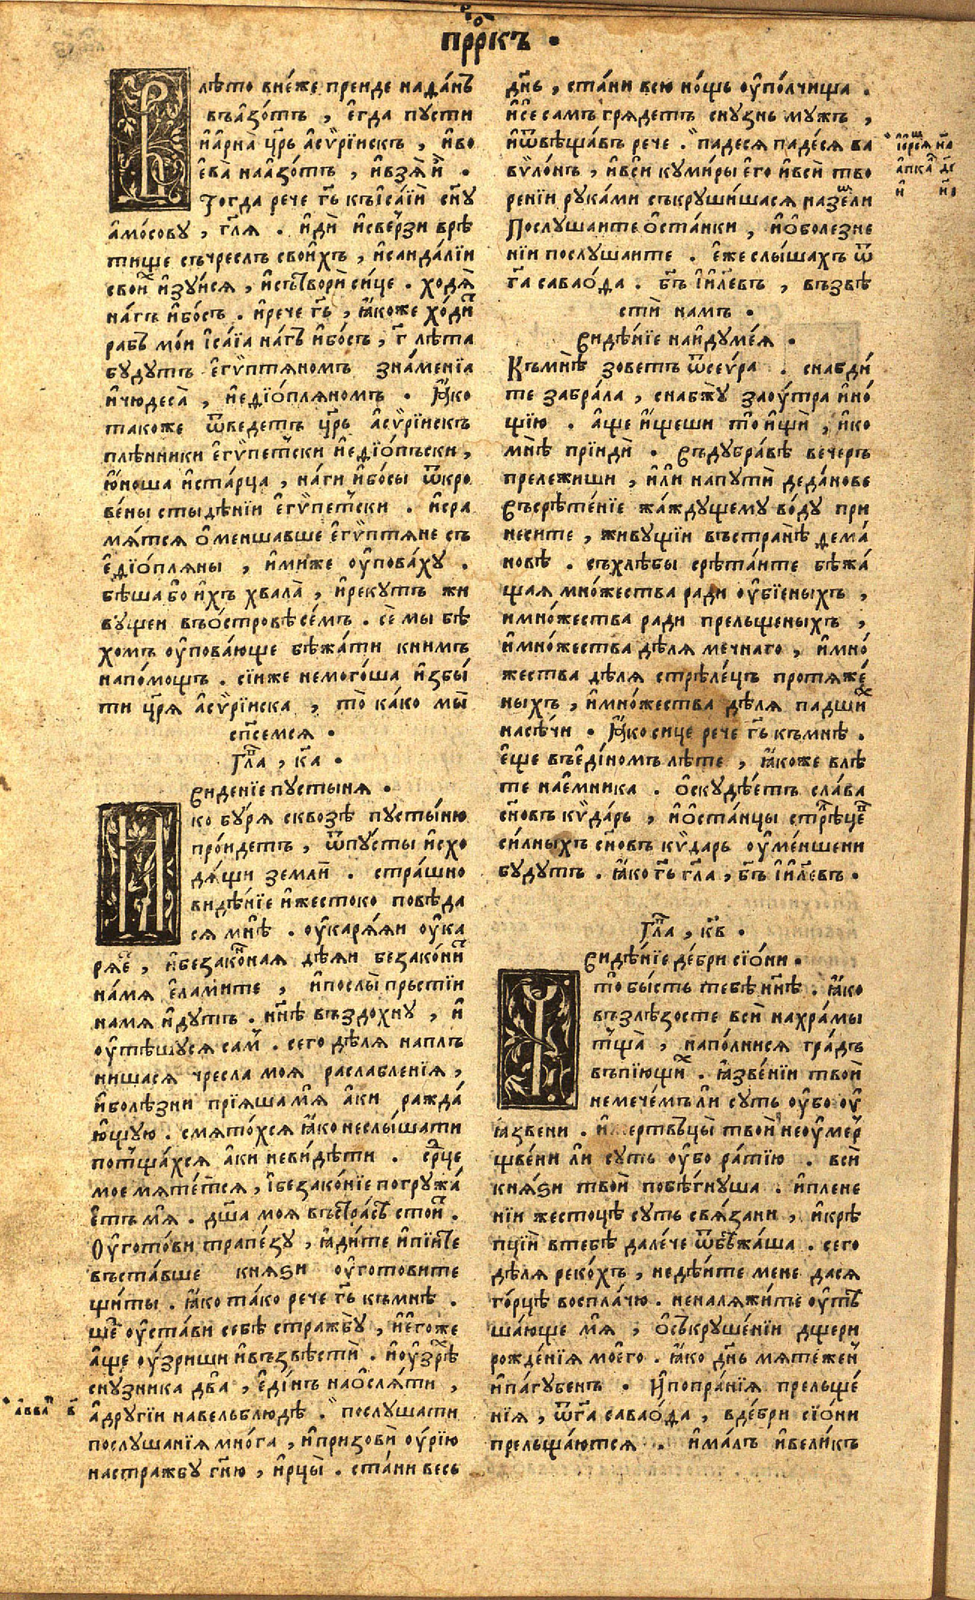 прⷪ҇ркъ .
В лѣто внеже прейде наданъ
въазотъ , егда пусти
иарна црь асѷрїискъ , иво
ева наазотъ , ивзя и .
Тогда рече гь́ къісаїи сну
амосову , гл҃я . иди исверзи врѣ
тище съчреслъ своихъ , исандалїи
свои изуися , исътвори сице . ходя
нагъ ибосъ . ирече гь́ , ꙗкоже ходи
рабъ мои ісаїа нагъ ибосъ , г҃ лѣта
будутъ егѷптяномъ знаменїа
ичюдеса , иедіопляномъ . Ꙗко
такоже ѿведетъ црь асѷрїискъ
плѣнники егѷпетски иедіопъски ,
юноша истарца , наги ибосы ѿкро
вены стыдѣнїи егѷпетски . исра
мятся оменшавше егѷптяне съ
едіопляны , имиже уповаху .
бѣша бо ихъ хвала , ирекутъ жи
вущеи въостровѣ семъ . се мы бѣ
хомъ уповающе бѣжати книмъ
напомощъ . сїиже немогоша избы
ти цря асѷрїиска , то како мы
спсемся .
Гла , к҃а .
видѣнїе пустыня .
Ꙗко буря сквозѣ пустыню
проидетъ , ѿпусты исхо
дящи земли . страшно
видѣнїе ижестоко повѣда
ся мнѣ . укаряяи ука
ряе , ибезаконная дѣяи безаконїи
намя еламите , ипослы прьстїи
намя идутъ . ннѣ въздохну , и
утѣшуся сам . сего дѣля напль
нишася чресла моя раслабленїя ,
иболѣзни прїяша мя аки ражда
ющую . смятохся ꙗко неслышати
потщахся аки невидѣти . срце
мое мятется , ібезаконїе погружа
етъ мя . дша моя въстрасѣ стои .
Уготови трапезу , ꙗдите ипїите
въставше князи уготовите
щиты . ꙗко тако рече гь́ къмнѣ .
ше устави себѣ стражбу , иегоже
аще узриши ивъзвѣсти . иоузрѣ
снузника два , едінъ наосляти ,
адругїи навельблюдѣ . послушати
послушанїя многа , ипризови урїю
настражбу гню , ирцы . стани весь
аввак в҃
днь , стани всю нощь уполчища .
исе самъ грядетъ снузнь мужъ ,
иѿвѣщавъ рече . падеся падеся ва
вѷлонъ , ивси кумиры его ивси тво
ренїи руками съкрушишася наземли
Послушаите останки , иоболезне
нїи послушаите . еже слышахъ ѿ
га саваода . бъ іилевъ , възвѣ
сти намъ .
видѣнїе наидумея .
Къмнѣ зоветъ ѿсеѷра . снабди
те забрала , снабжу заутра ино
щїю . аще ищеши то ищи , ико
мнѣ прїиди . въдубравѣ вечеръ
прележиши , или напути деданове
Въсрѣтенїе жаждущему воду при
несите , живущїи въстранѣ дема
новѣ . съхлѣбы срѣтаите бѣжа
щая множества ради убїеныхъ ,
имножества ради прельщеныхъ ,
имножества дѣля мечнаго , имно
жества дѣля стрѣлецъ протяже
ныхъ , имножества дѣля падши
насѣчи . Ꙗко сице рече гь́ къмнѣ .
еще въедіномъ лѣте , ꙗкоже влѣ
те наемника . оскудѣетъ слава
сновъ кѷдарь , иостанцы стрѣцел
силныхъ сновъ кѷдарь уменшени
будутъ . ꙗко гь́ гла , бъ іилевъ .
Гла , к҃в .
видѣнїе дебри сїони .
Что бысть тебѣ ннѣ . ꙗко
възлѣзосте вси нахрамы
тща , наполнися градъ
въпїющи . ꙗзвенїи твои
немечемъ ли суть убо у
ꙗзвени . и ертвьцы твои неумер
щвени ли суть убо ратїю . вси
князи твои побѣгнуша . иплене
нїи жестоцѣ суть связани , икрѣ
пцїи втебѣ далече ѿбѣжаша . сего
дѣля рекохъ , недѣите мене дася
горцѣ восплачю . неналяжите утѣ
шающе мя , осъкрушенїи дщери
роженїя моего . ꙗко днь мятежеи
ипагубенъ . Ипопранїя прельще
нїя , ѿга саваода , вдебри сїони
прельщаются . ималъ ивеликъ